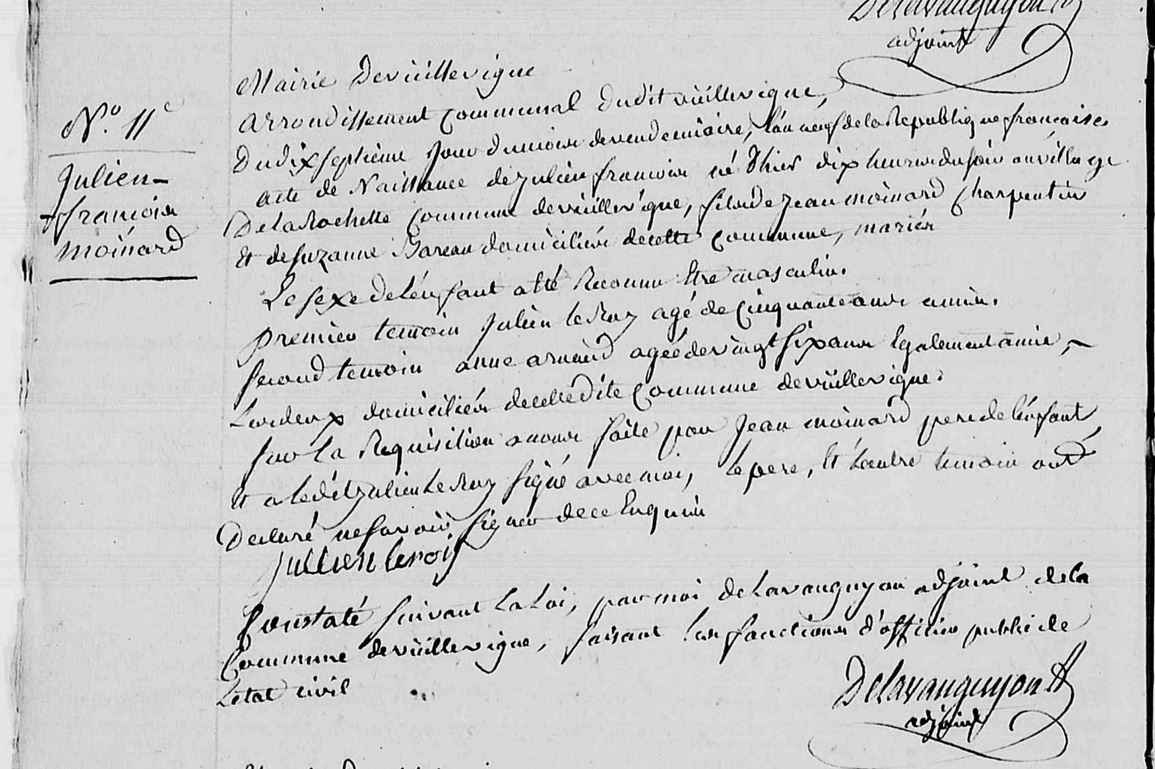 Delavauguyon
adjoint
Mairie de vieillevigne
arrondissement communal dudit vieillevigne,
Du dix septieme jour du mois de vendemiaire, l'an neuf de la Republique francaise
N.o 11e
Julien
francois
moinard
acte de Naissance de julien francois né d'hier dix heures du soir au village
De la Rochette commune de vieillevigne, fils de jean moinard charpentier
et de suzanne Bareau domiciliés de cette commune, mariés
Le sexe de l'enfant a été Reconnu Etre masculin.
premier temoin julien le Roy agé de cinquante ans amis.
second temoin anne arnaud agée de vingt six ans Egalement amie,
Les deux domiciliés de cette dite commune de vieillevigne.
sur la Requisition a nous faite par jean moinard pere de l'enfant,
Et a ledit julien le Roy signé avec moi, le pere, et l'autre temoin ont
Declaré ne savoir signer de ce Enquis
jullien leroy
Constaté suivant La Loi, par moi delavauguyon adjoint de la
Commune de vieillevigne, faisant Les fonctions d'officier public de
L'etat civil
Delavauguyon
adjoint